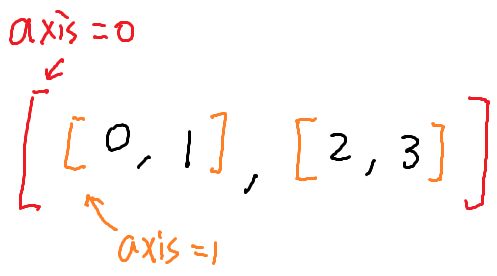 axis=0
[[0,1],[2,3]]
axis=1